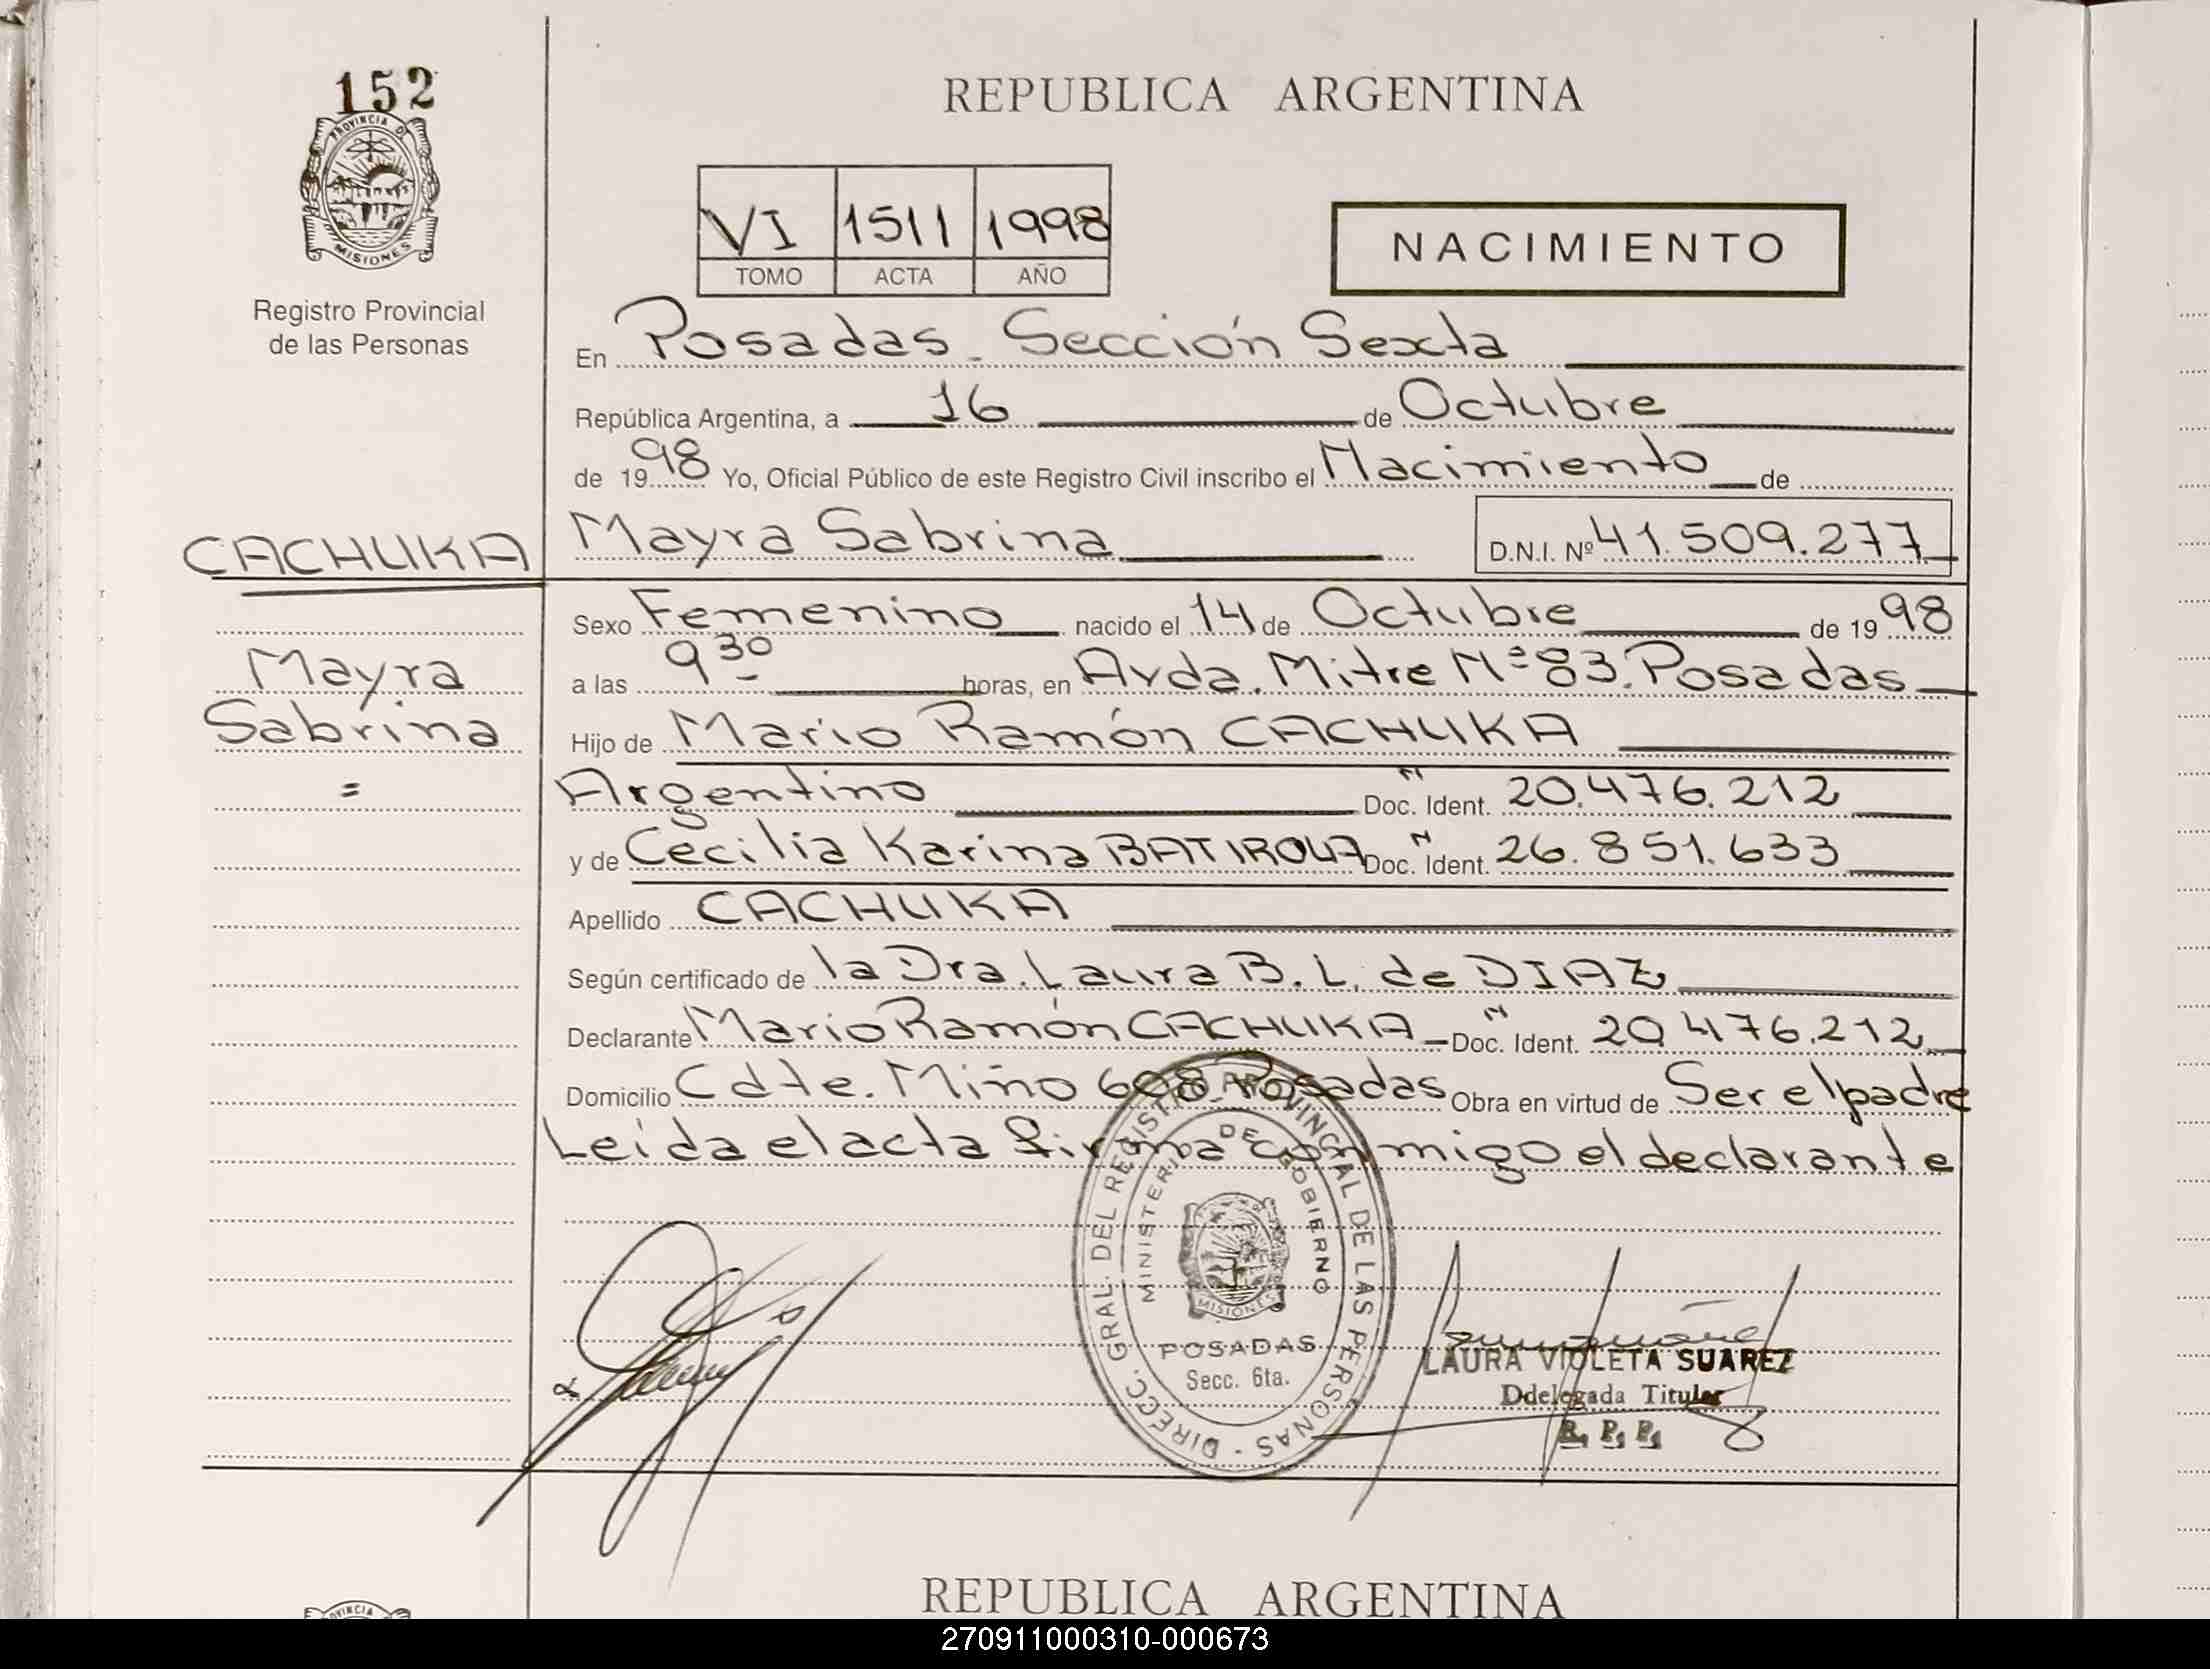 152
PROVINCIA DE
MISIONES
Registro Provincial
de las Personas
REPUBLICA ARGENTINA
VI 1511 1998
TOMO ACTA AÑO
NACIMIENTO
En Posadas - Sección Sexta
República Argentina, a 16 de Octubre
de 1998 Yo, Oficial Público de este Registro Civil inscribo el Nacimiento de
CACHUKA Mayra Sabrina D.N.I. Nº 41.509.277
Sexo Femenino nacido el 14 de Octubre de 1998
Mayra a las 9 30 horas, en Avda. Mitre Nº 83. Posadas
Sabrina Hijo de Mario Ramón CACHUKA
= Argentino Doc. Ident. N 20.476.212
y de Cecilia Karina Doc. Ident. N 26.851.633
Apellido CACHUKA
Según certificado de la Dra. Laura B. L. de DIAZ
Declarante Mario Ramón CACHUKA Doc. Ident. N 20.476.212
Domicilio Cdte. Miño 608 Posadas Obra en virtud de Ser el padre
Leida el acta firma conmigo el declarante
DIRECC. GRAL. DEL REGISTRO PROVINCIAL DE LAS PERSONAS -
MINISTERIO DE GOBIERNO
MISIONES
POSADAS
Secc. 6ta.
LAURA VIOLETA SUAREZ
Ddelegada Titular
R. P. P.
REPUBLICA ARGENTINA
PROVINCIA
270911000310-000673